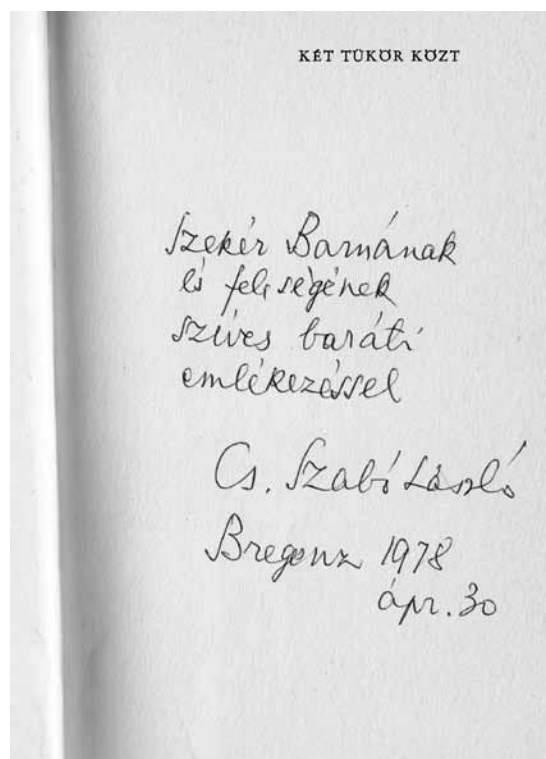 KÉT TÜKÖR KÖZT
Szekér Barnának
és feleségének
szíves baráti
emlékezéssel
Cs. Szabó László
Bregenz 1978
ápr. 30